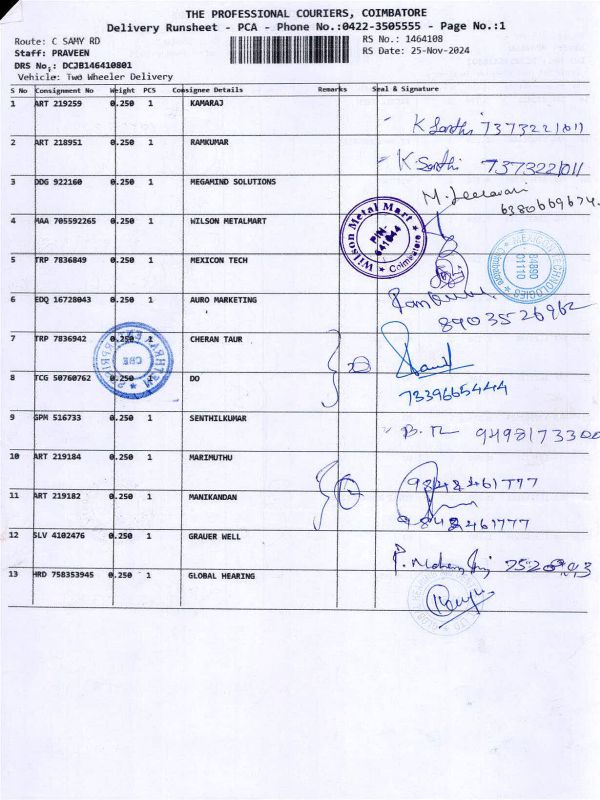 THE PROFESSIONAL COURIERS, COIMBATORE
Delivery Runsheet - PCA - Phone No.:0422-3505555 - Page No.:1
Route: C SAMY RD
RS No.: 1464108
Staff: PRAVEEN
RS Date: 25-Nov-2024
DRS No,: DCJB146410801
Vehicle: Two Wheeler Delivery
S No Consignment No Weight PCS Consignee Details Remarks Seal & Signature
1 ART 219259 0.250 1 KAMARAJ
K Santhi 7373221011
2 ART 218951 0.250 1 RAMKUMAR
K. Santhi 7373221011
3 DDG 922160 0.250 1 MEGAMIND SOLUTIONS
M. Leelavani
4 MAA 705592265 0.250 1 WILSON METALMART
Wilson Metal Mart
PIN-
641044
Coimbatore
5 TRP 7836849 0.250 1 MEXICON TECH
6 EDQ 16728043 0.250 1 AURO MARKETING
8903526962
7 TRP 7836942 0.250 1 CHERAN TAUR
CBE
8 TCG 50760762 0.250 1 DO
7339665444
9 GPM 516733 0.250 1 SENTHILKUMAR
9498173300
10 ART 219184 0.250 1 MARIMUTHU
11 ART 219182 0.250 1 MANIKANDAN
12 SLV 4102476 0.250 1 GRAUER WELL
13 HRD 758353945 0.250 1 GLOBAL HEARING